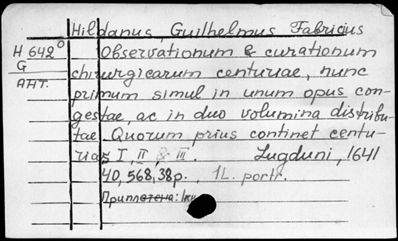 Hildanus, Guilhelmus Fabricius
H 642° Observationum & curationum
G chirurgicarum centuriae, nunc
АНТ. primum simul in unum opus con-
gestae, ac in duo volumina distribu-
tae. Quorum prius continet centu-
rias I, II & III. Lugduni, 1641
40, 568, 38 p., 1L. portr.
Приплетена: 1кн